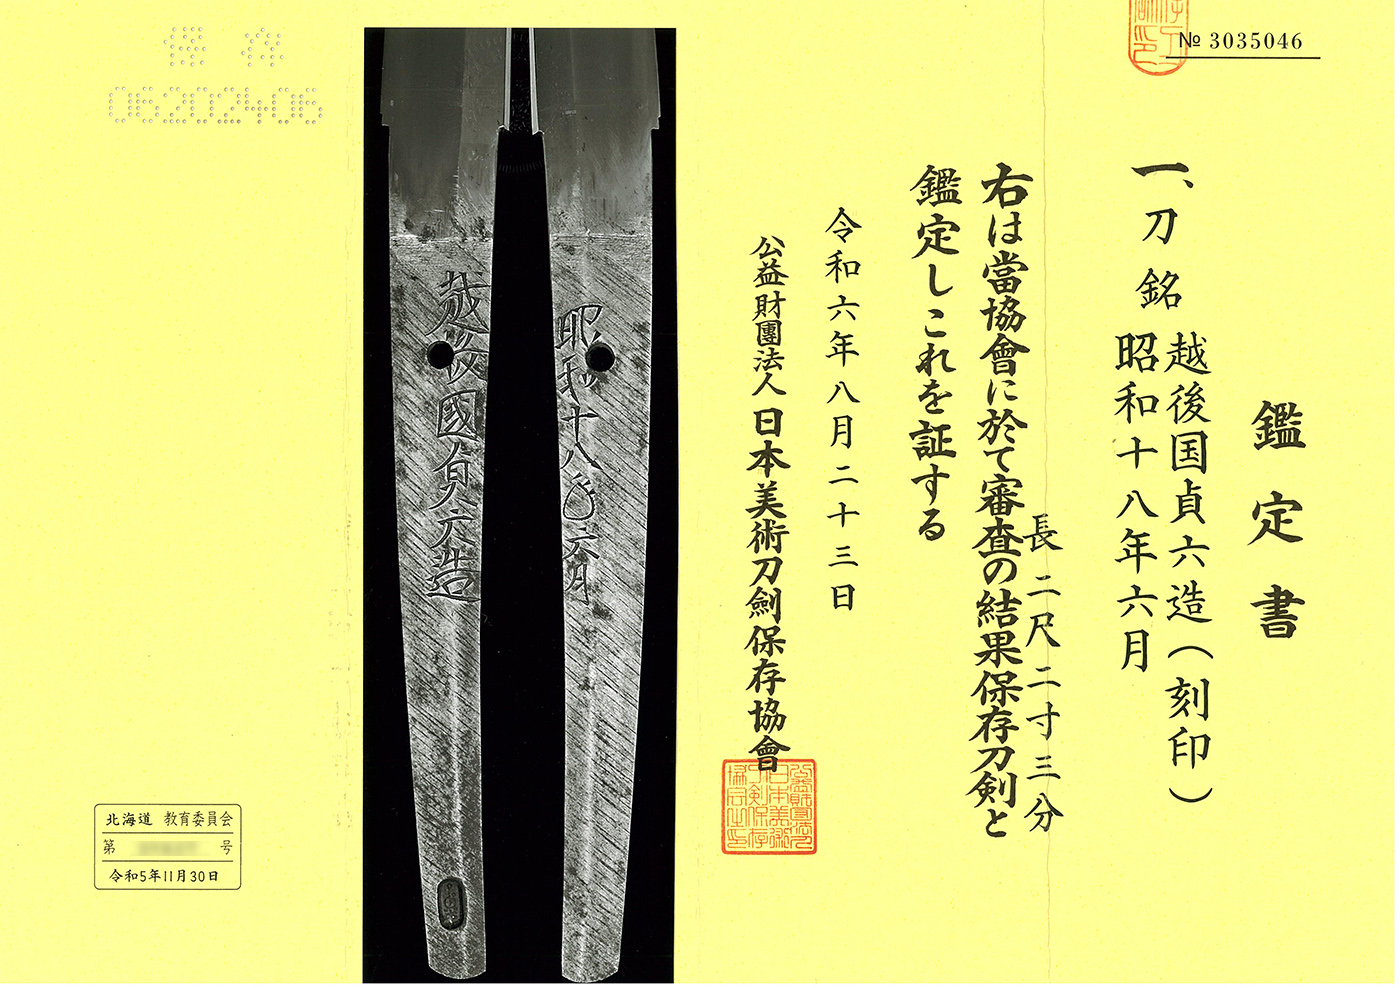 № 3035046
鑑定書
一、刀 銘 越後国貞六造(刻印)
昭和十八年六月
長 二尺二寸三分
右は當協會に於て審査の結果保存刀剣と
鑑定しこれを証する
令和六年八月二十三日
公益財團法人 日本美術刀劍保存協會
昭和十八年六月
越後國貞六造
保存
06202406
北海道 教育委員会
第 号
令和5年11月30日